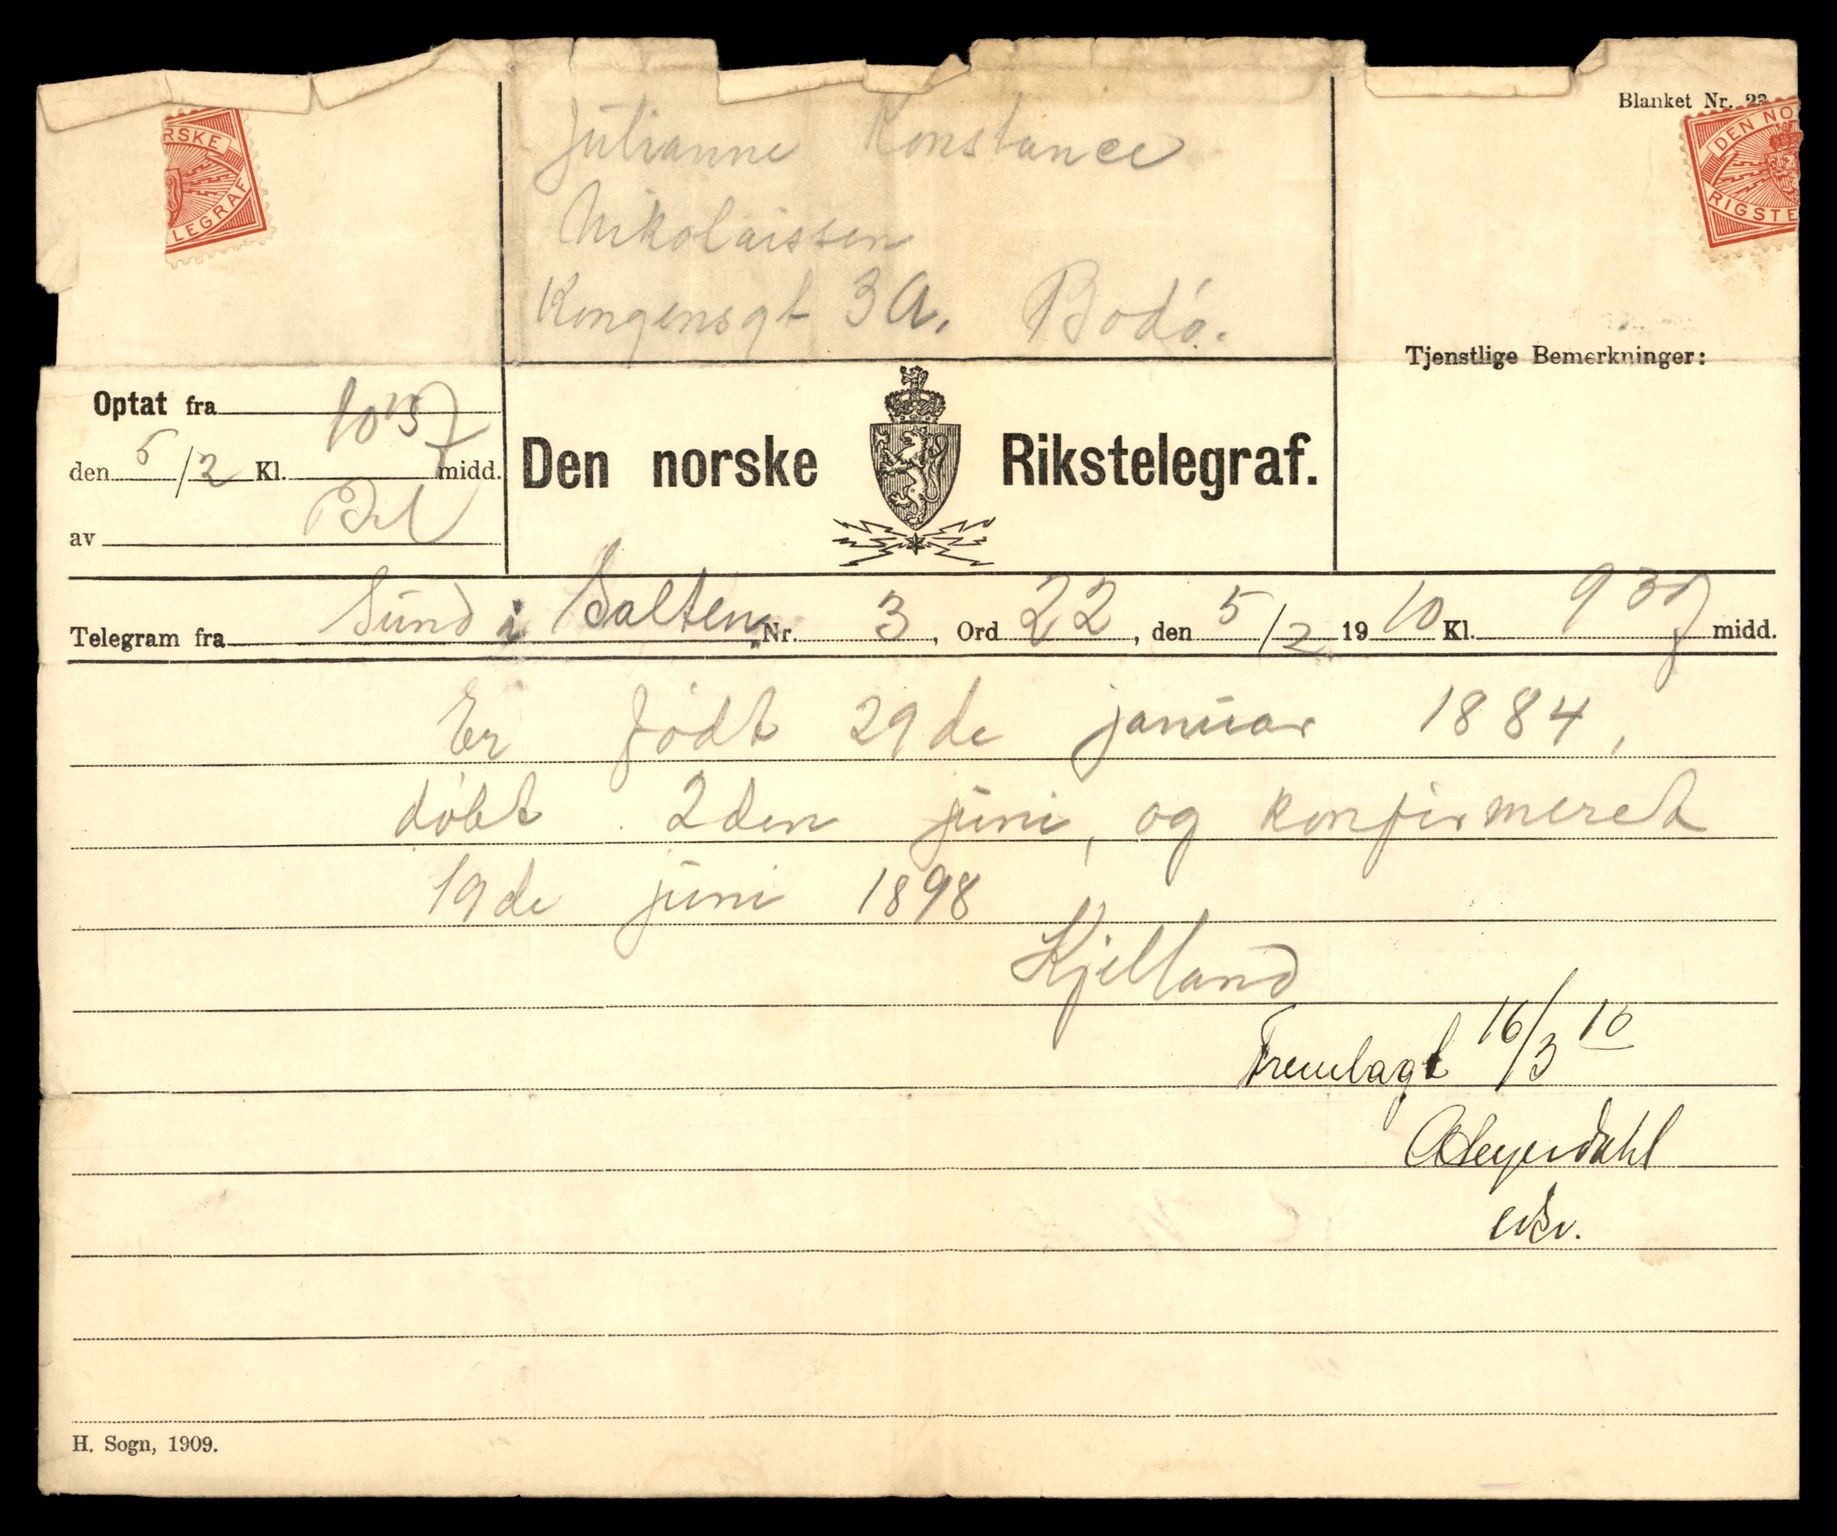 Blanket Nr. 23
RSKE
LEGRAF
DEN NO
RIGSTE
Julianne Konstance
Nikolaissen
Kongensgt 3A. Bodö.
Tjenstlige Bemerkninger:
Optat fra
den 5/2 Kl. 10 15 f midd.
av
Den norske Rikstelegraf.
Telegram fra Sund i Salten Nr. 3, Ord 22, den 5/2 1910 Kl. 9 30 f midd.
Er födt 29de januar 1884,
döbt 2den juni, og konfirmeret
19de juni 1898
Kjelland
Fremlagt 16/3 10
AHeyerdahl
H. Sogn, 1909.